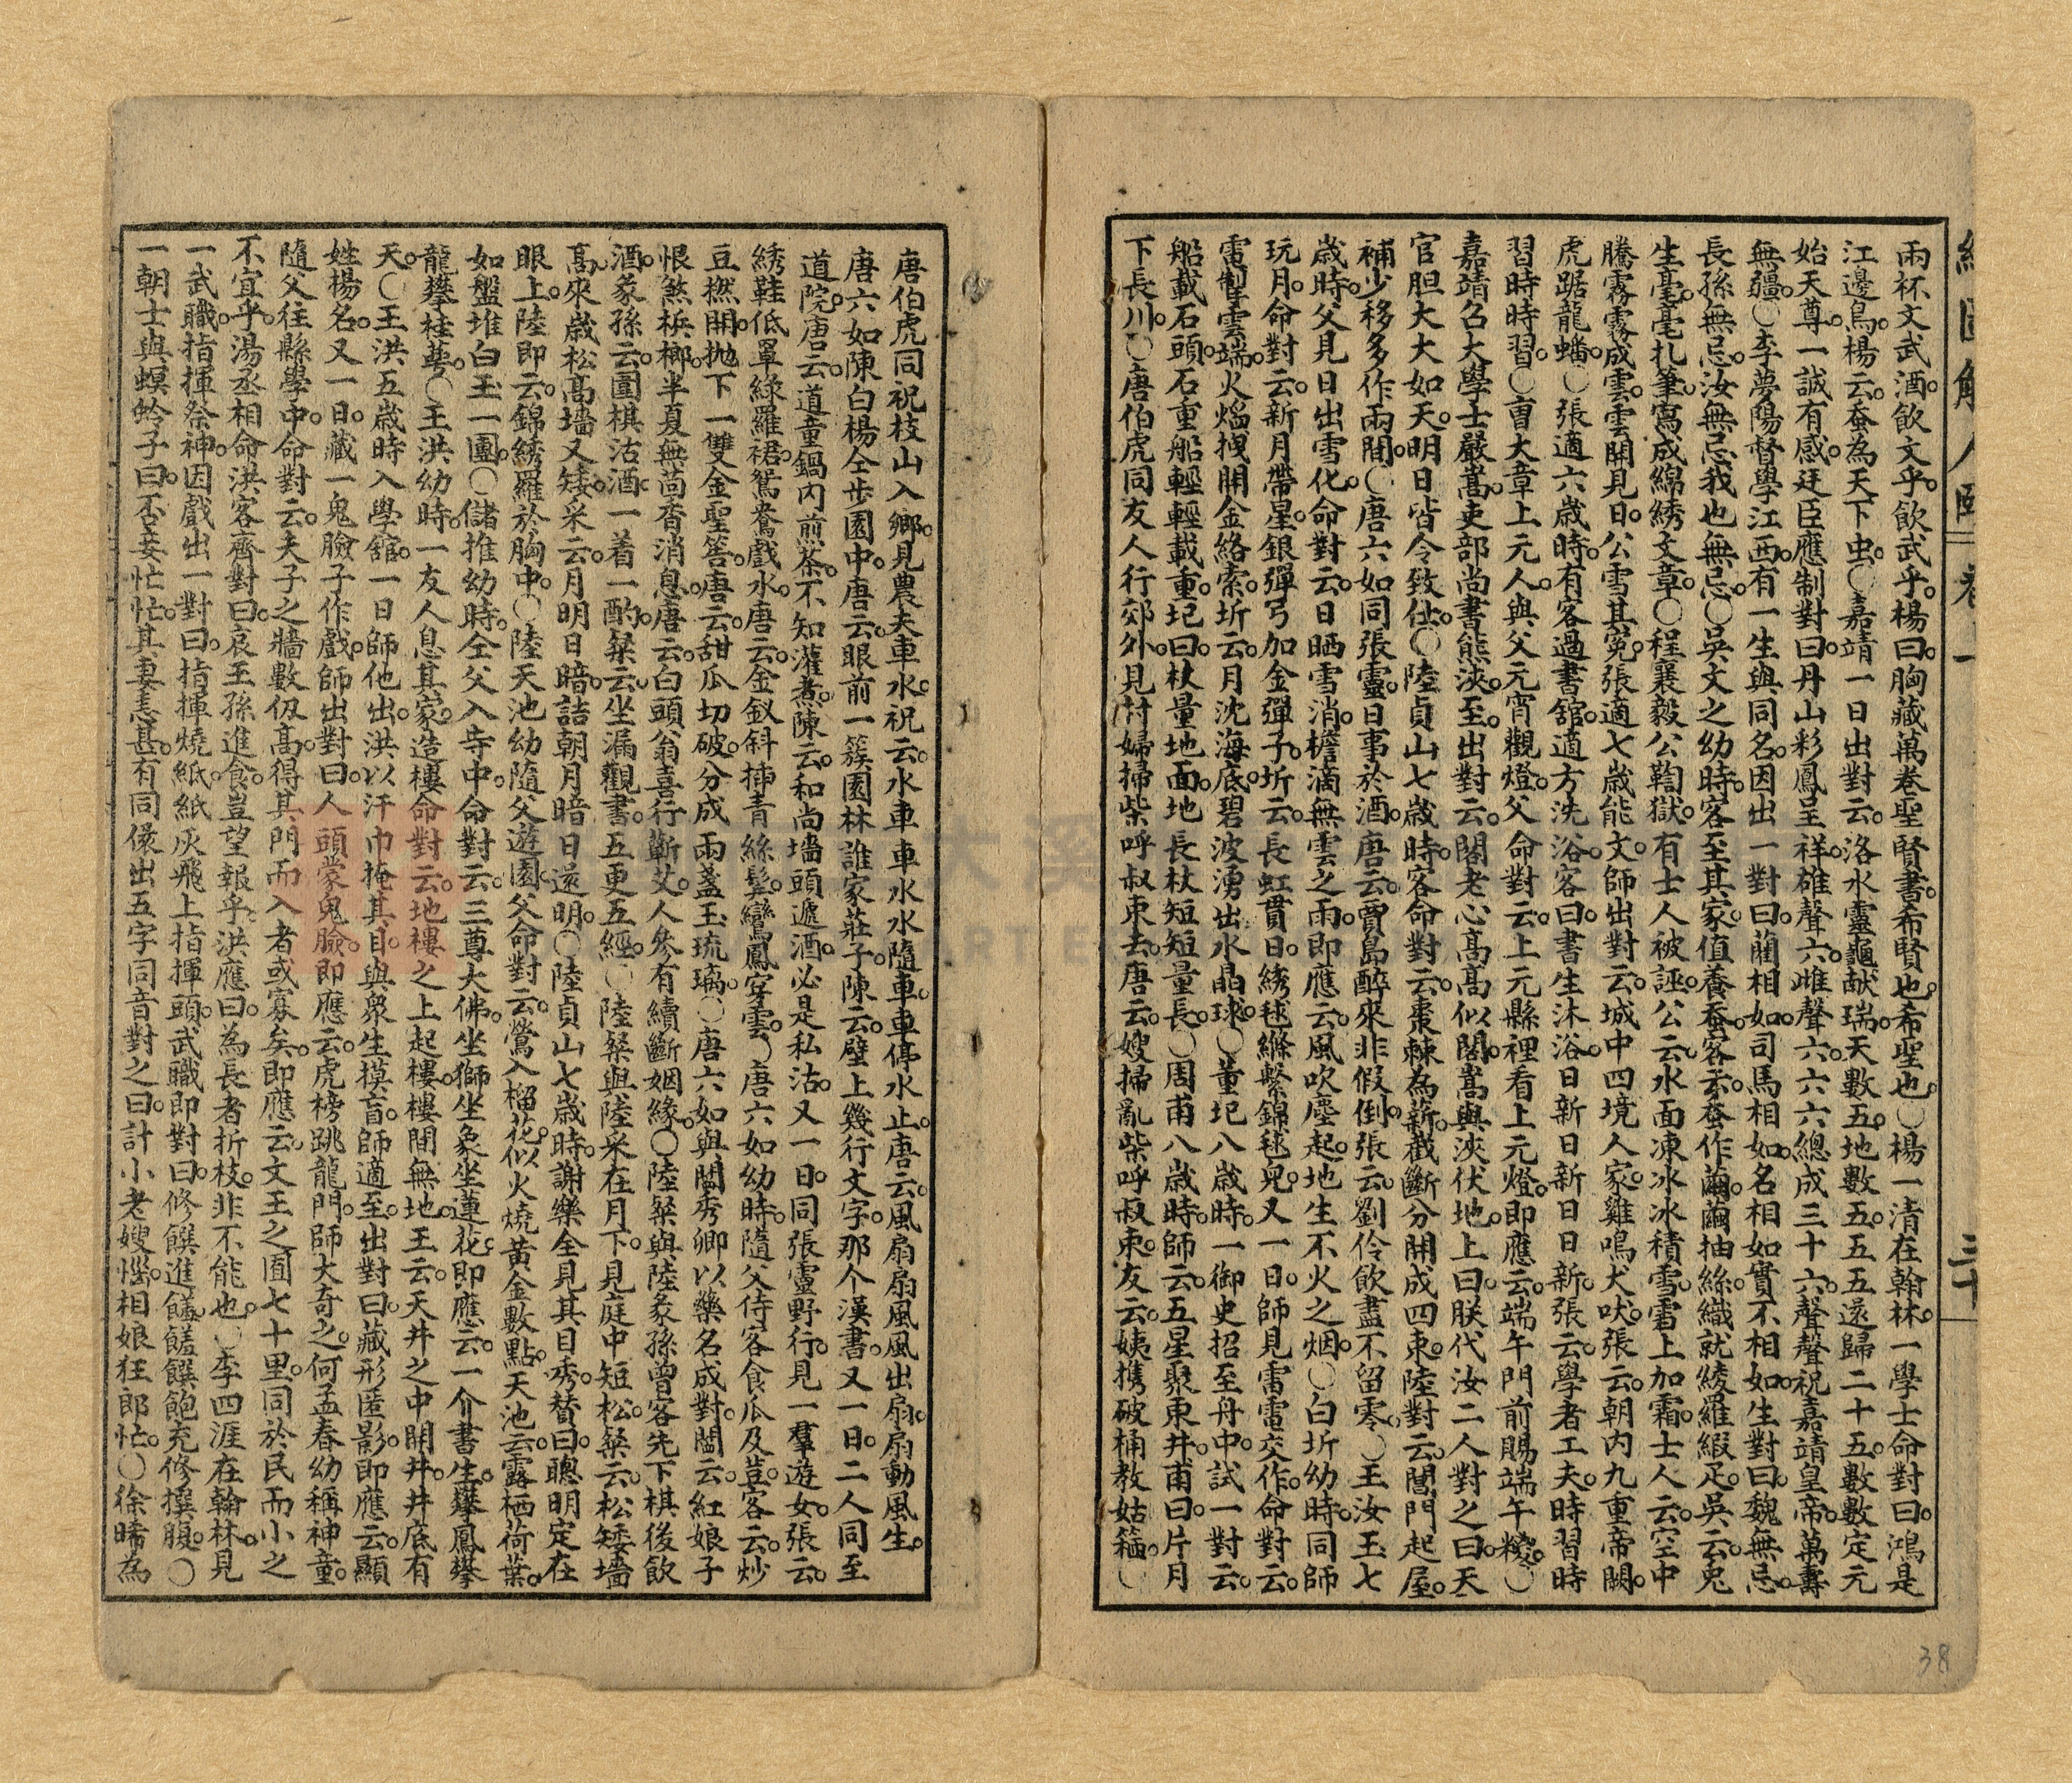 兩杯文武酒。飲文乎。飲武乎。楊曰。胸藏萬卷聖賢書。希賢也。希聖也。○楊一清在翰林。一學士命對曰。鴻是
江邊鳥。楊云。蚕為天下虫。○嘉靖一日出對云。洛水靈龜献瑞。天數五。地數五。五五還歸二十五。數數定元
始天尊。一誠有感。廷臣應制對曰。丹山彩鳳呈祥。雄聲六。雌聲六。六六總成三十六。聲聲祝嘉靖皇帝。萬壽
無疆。○李夢陽督學江西。有一生與同名。因出一對曰。藺相如司馬相如。名相如實不相如。生對曰。魏無忌。
長孫無忌。汝無忌我也無忌。○吳文之幼時。客至其家。值養蚕。客云。蚕作繭。繭抽絲。織就綾羅緞疋。吳云。兎
生毫。毫扎筆。寫成綿綉文章。○程襄毅公鞫獄。有士人被誣。公云。水面凍冰。冰積雪。雪上加霜。士人云。空中
騰霧。霧成雲。雲開見日。公雪其冤。張適七歲能文。師出對云。城中四境人家。雞鳴犬吠。張云。朝内九重帝闕。
虎踞龍蟠。○張適六歲時。有客過書舘。適方洗浴。客曰。書生沐浴。日新日新日日新。張云。學者工夫。時習時
習時時習。○曺大章上元人。與父元宵觀燈。父命對云。上元縣裡看上元燈。即應云。端午門前賜端午糉。○
嘉靖召大學士嚴嵩。吏部尚書熊浹。至。出對云。閣老心高高似閣。嵩與浹伏地。上曰。朕代汝二人對之曰。天
官胆大大如天。明日皆令致仕。○陸貞山七歲時。客命對云。棗棘為薪。截斷分開成四束。陸對云。閶門起屋。
補少移多作兩間。○唐六如同張靈。日事於酒。唐云。賈島醉來非假倒。張云。劉伶飲盡不留零。○王汝玉七
歲時。父見日出雪化。命對云。日晒雪消。檐滴無雲之雨。即應云。風吹塵起。地生不火之烟。○白圻幼時。同師
玩月。命對云。新月帶星。銀彈弓加金彈子。圻云。長虹貫日。綉毬縧繫錦毬兒。又一日。師見雷電交作。命對云。
電掣雲端。火熖拽開金絡索。圻云。月沈海底。碧波湧出水晶球。○董圯八歲時。一御史招至舟中。試一對云。
船載石頭。石重船輕輕載重。圯曰。杖量地面。地長杖短短量長。○周甫八歲時。師云。五星聚東井。甫曰。片月
下長川。○唐伯虎同友人行郊外。見村婦掃柴。呼叔束去。唐云。嫂掃亂柴呼叔束。友云。姨携破桶教姑箍。○
唐伯虎同祝枝山入鄉。見農夫車水。祝云。水車車水水隨車。車停水止。唐云。風扇扇風風出扇。扇動風生。
唐六如陳白楊仝步園中。唐云。眼前一簇園林誰家莊子。陳云。壁上幾行文字。那个漢書。又一日。二人同至
道院。唐云。道童鍋内煎茶。不知灌煮。陳云。和尚墻頭遞酒。必是私沽。又一日。同張靈野行。見一羣遊女。張云。
綉鞋低罩綠羅裙。鴛鴦戲水。唐云。金釵斜揷青絲髮。鸞鳳穿雲。○唐六如幼時。隨父侍客食瓜及荳。客云。炒
豆撚開。抛下一雙金聖筶。唐云。甜瓜切破。分成兩盞玉琉璃。○唐六如與閶秀卿以藥名成對。閶云。紅娘子
恨煞梹榔。半夏無茴香消息。唐云。白頭翁喜行蘄艾。人參有續斷姻緣。○陸粲與陸彖孫曾客先下棋後飲
酒。彖孫云。圍棋沽酒一着一酌。粲云。坐漏觀書。五更五經。○陸粲與陸采在月下。見庭中短松。粲云。松矮墻
髙。來歲松高墻又矮。采云。月明日暗。詰朝月暗日還明。○陸貞山七歲時。謝樂全見其目秀。替曰。聰明定在
眼上。陸即云。錦綉羅於胸中。○陸天池幼隨父遊園。父命對云。鶯入榴花似火燒黃金數點。天池云。露栖荷葉。
如盤堆白玉一團。○儲推幼時。仝父入寺中。命對云。三尊大佛。坐獅坐象坐蓮花。即應云。一介書生。攀鳳攀
龍攀桂萼。○王洪幼時。一友人息其家。造樓命對云。地樓之上起樓。樓閣無地。王云。天井之中開井。井底有
天。○王洪五歲時入學舘。一日師他出。洪以汗巾掩其目。與衆生摸盲。師適至。出對曰。藏形匿影。即應云。顯
姓楊名。又一日。藏一鬼臉子作戲。師出對曰。人頭蒙鬼臉。即應云。虎榜跳龍門。師大奇之。何孟春幼稱神童。
隨父往縣學中。命對云。夫子之牆數仭高。得其門而入者或寡矣。即應云。文王之囿七十里。同於民而小之
不宜乎。湯丞相命洪客齋對曰。哀王孫進食。豈望報乎。洪應曰。為長者折枝。非不能也。○李四涯在翰林。見
一武職指揮祭神。因戲出一對曰。指揮燒紙。紙灰飛上指揮頭。武職即對曰。修饌進饈。饈饌飽充修撰腹。○
一朝士與螟蛉子曰。丕妾忙忙。其妻恚甚。有同僚出五字同音對之曰。計小老嫂惱。相娘狂郎忙。○徐晞為
三十
38